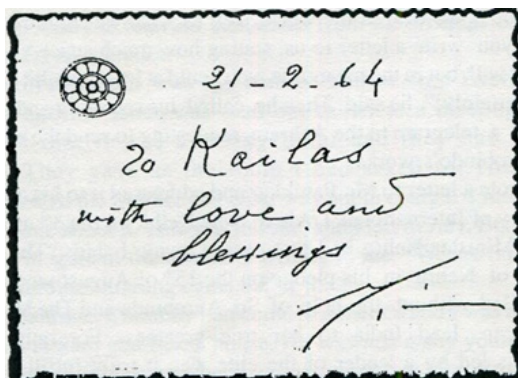 21-2-64
To Kailas
with love and
blessings